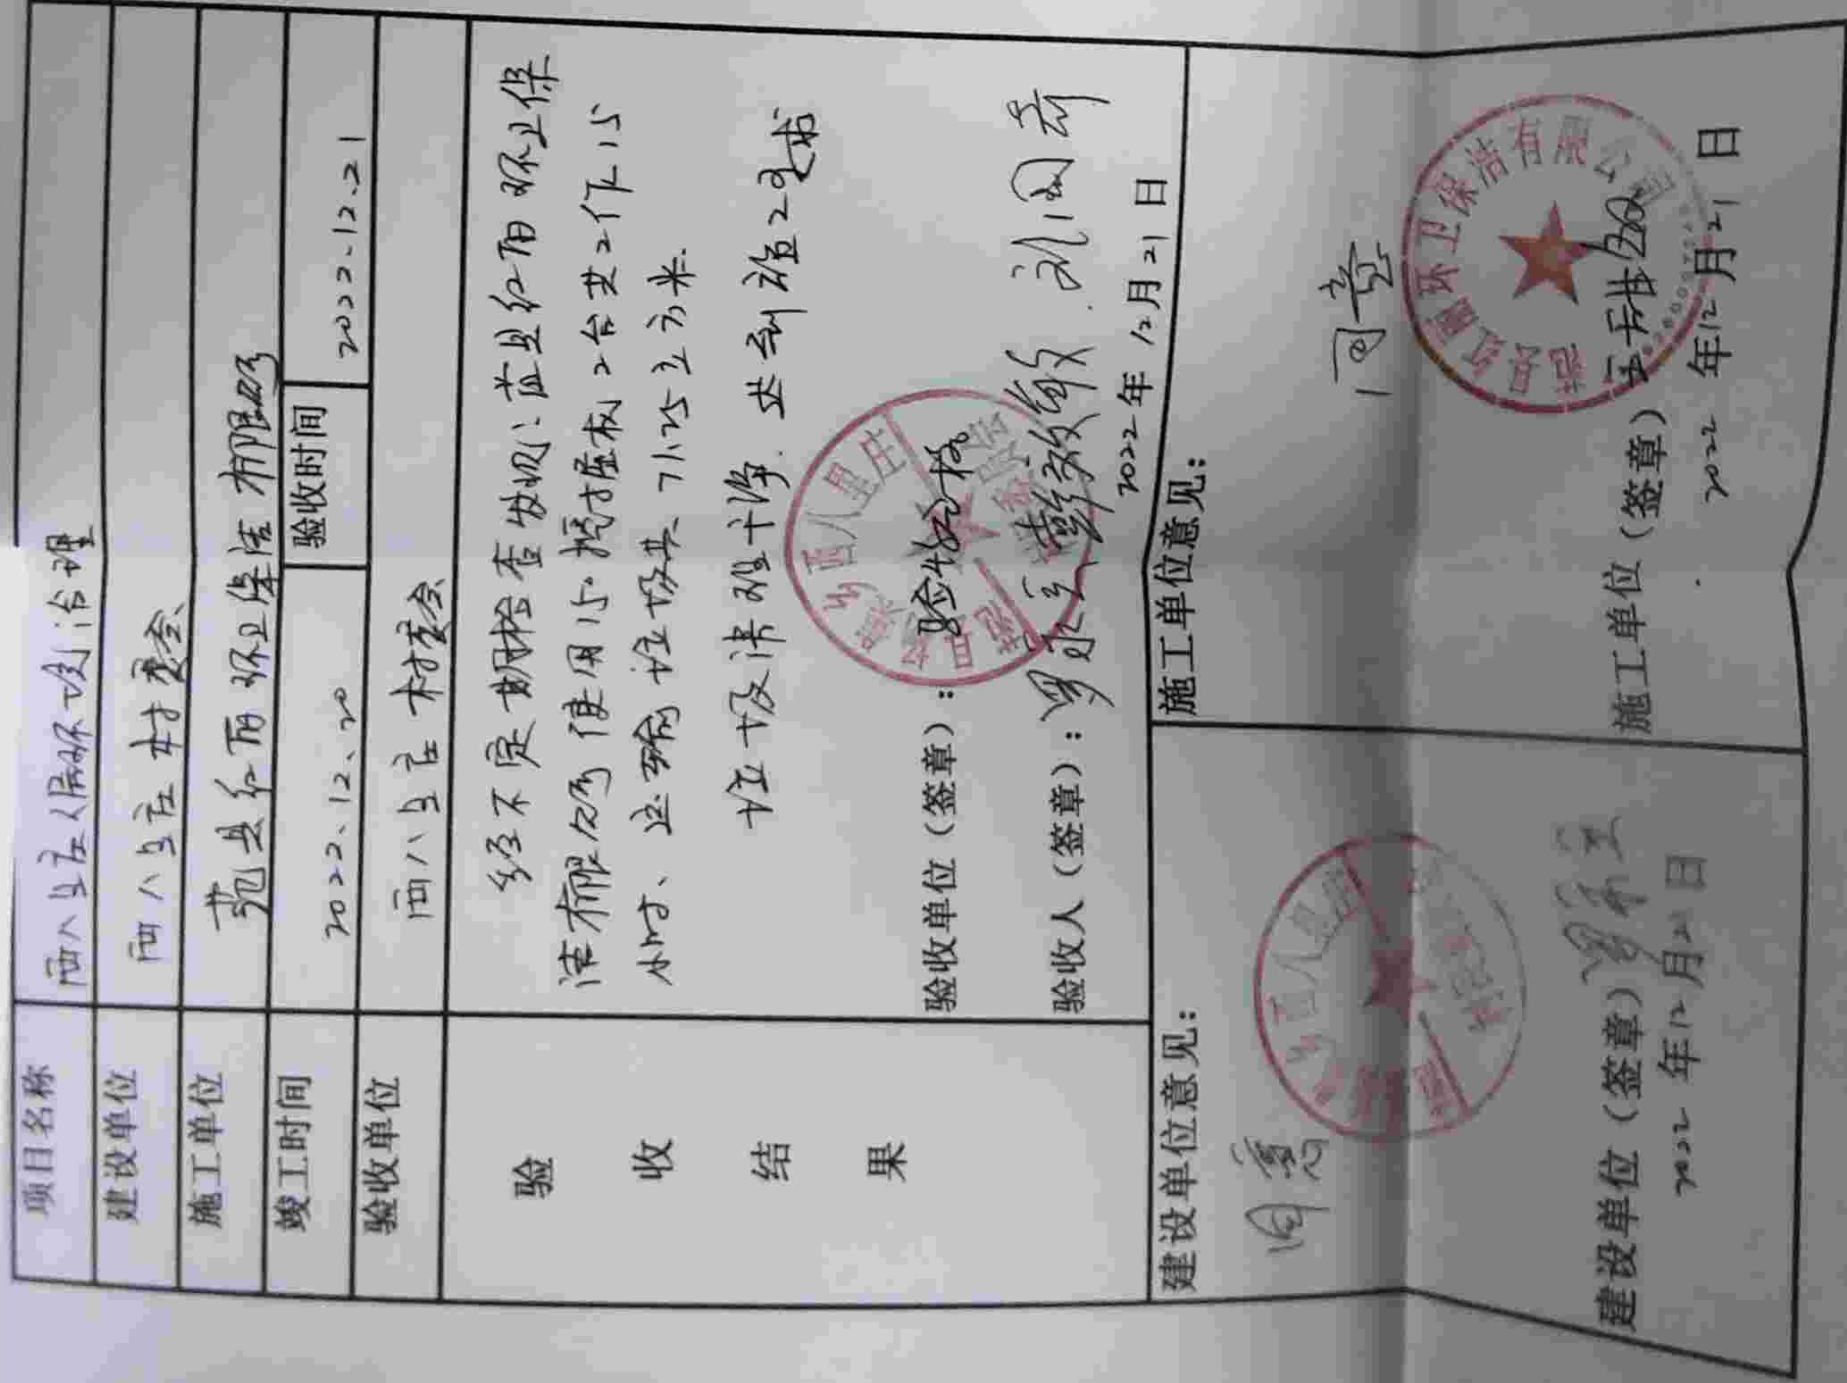 项目名称 西八里庄人居环境治理
建设单位 西八里庄村委会
施工单位 范县红雨环卫保洁有限公司
竣工时间 2022.12.20 验收时间 2022.12.21
验收单位 西八里庄村委会
验收结果
经不定期检查发现：范县红雨环卫保
洁有限公司使用150挖掘机2台共工作15
小时、运输垃圾共7125立方米.
垃圾清理干净.达到验收要求
验收单位（签章）：验收合格
验收人（签章）：
2022年12月21日
建设单位意见：
同意
建设单位（签章）
2022年12月21日
施工单位意见：
同意
环卫保洁有限公司
施工单位（签章）
2022年12月21日